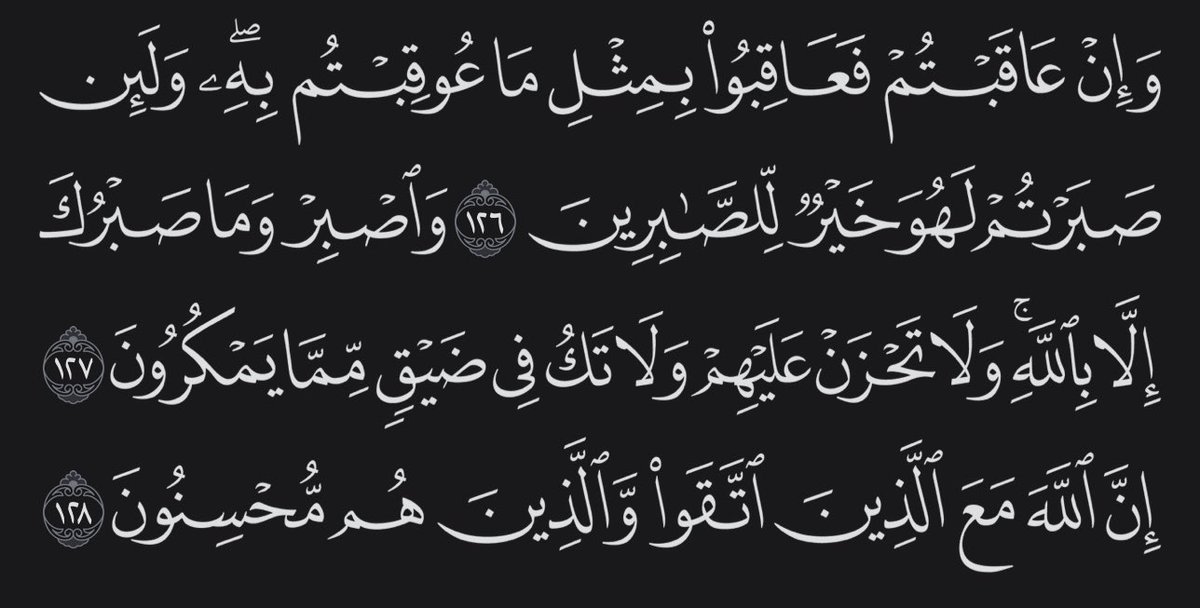 وَإِنْ عَاقَبْتُمْ فَعَاقِبُوا۟ بِمِثْلِ مَا عُوقِبْتُم بِهِۦ ۖ وَلَئِن
صَبَرْتُمْ لَهُوَ خَيْرٌ لِّلصَّـٰبِرِينَ ١٢٦ وَٱصْبِرْ وَمَا صَبْرُكَ
إِلَّا بِٱللَّهِ ۚ وَلَا تَحْزَنْ عَلَيْهِمْ وَلَا تَكُ فِى ضَيْقٍ مِّمَّا يَمْكُرُونَ ١٢٧
إِنَّ ٱللَّهَ مَعَ ٱلَّذِينَ ٱتَّقَوا۟ وَّٱلَّذِينَ هُم مُّحْسِنُونَ ١٢٨